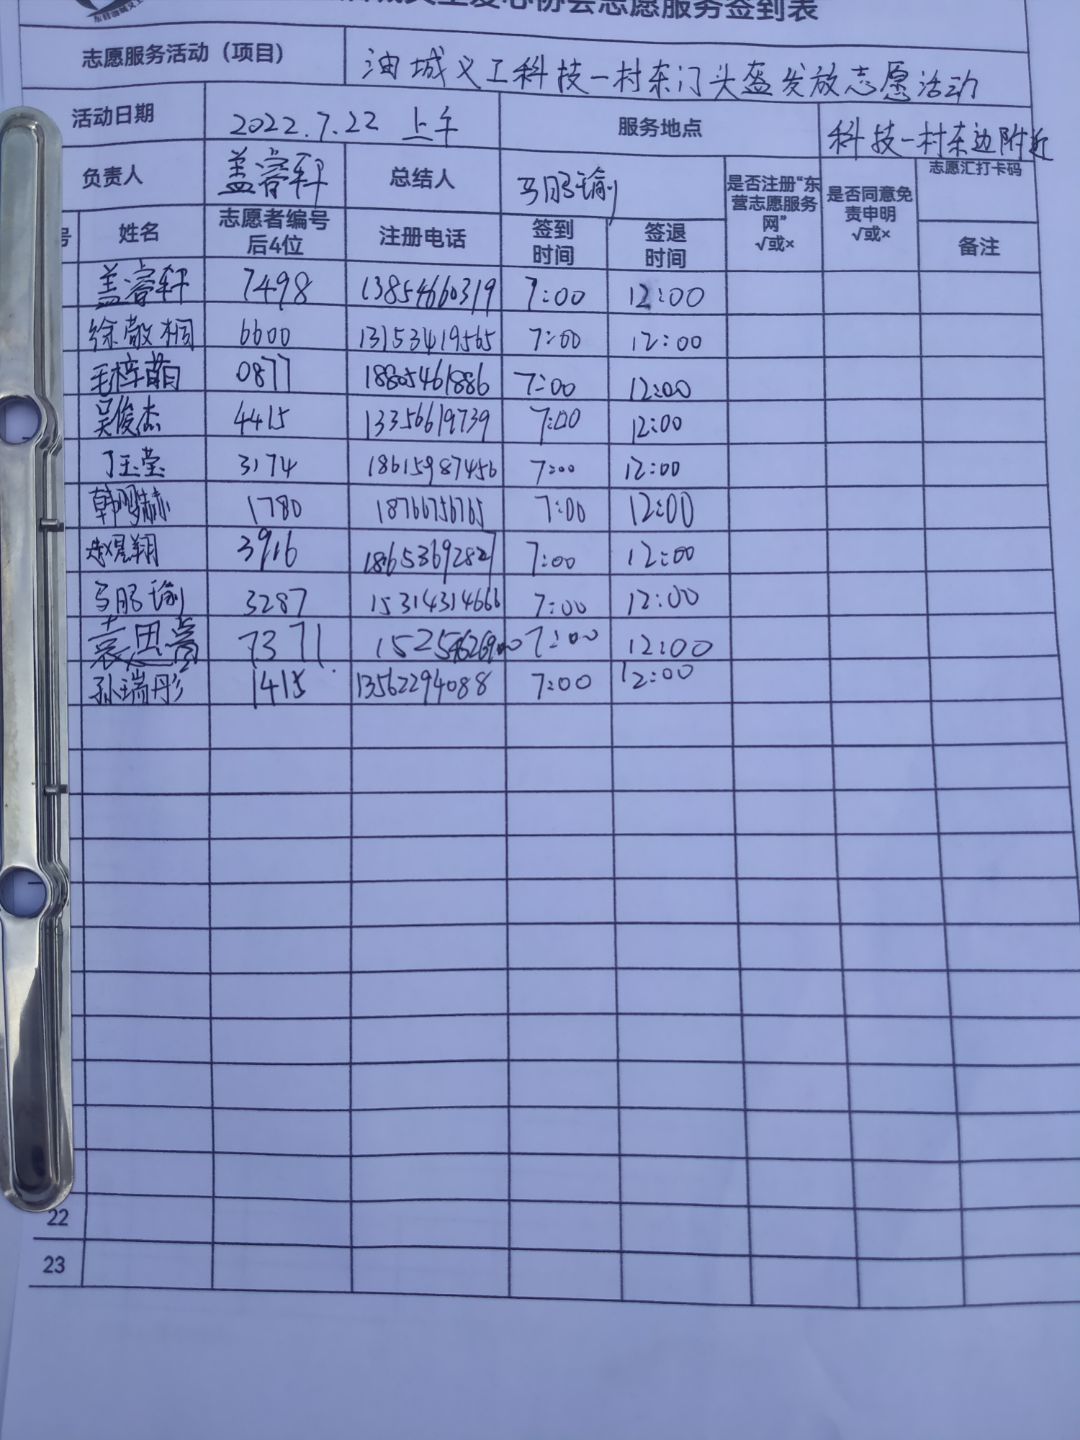 爱心协会志愿服务签到表
志愿服务活动（项目） 油城义工科技一村东门头盔发放志愿活动
活动日期 2022.7.22 上午 服务地点 科技一村东边附近
负责人 盖睿轩 总结人 马朋瑜 是否注册“东营志愿服务网”√或× 是否同意免责申明√或× 志愿汇打卡码
号 姓名 志愿者编号后4位 注册电话 签到时间 签退时间 备注
盖睿轩 7498 13854660319 7:00 12:00
徐敬桐 6600 13153419565 7:00 12:00
毛梓萌 0877 18805461886 7:00 12:00
吴俊杰 4415 13356619739 7:00 12:00
丁玉莹 3174 18615987456 7:00 12:00
韩鹏赫 1780 18766756765 7:00 12:00
赵昱翔 3916 18653692827 7:00 12:00
马朋瑜 3287 15314314666 7:00 12:00
袁思 7371 7:00 12:00
孙瑞彤 1415 13562294088 7:00 12:00
22
23